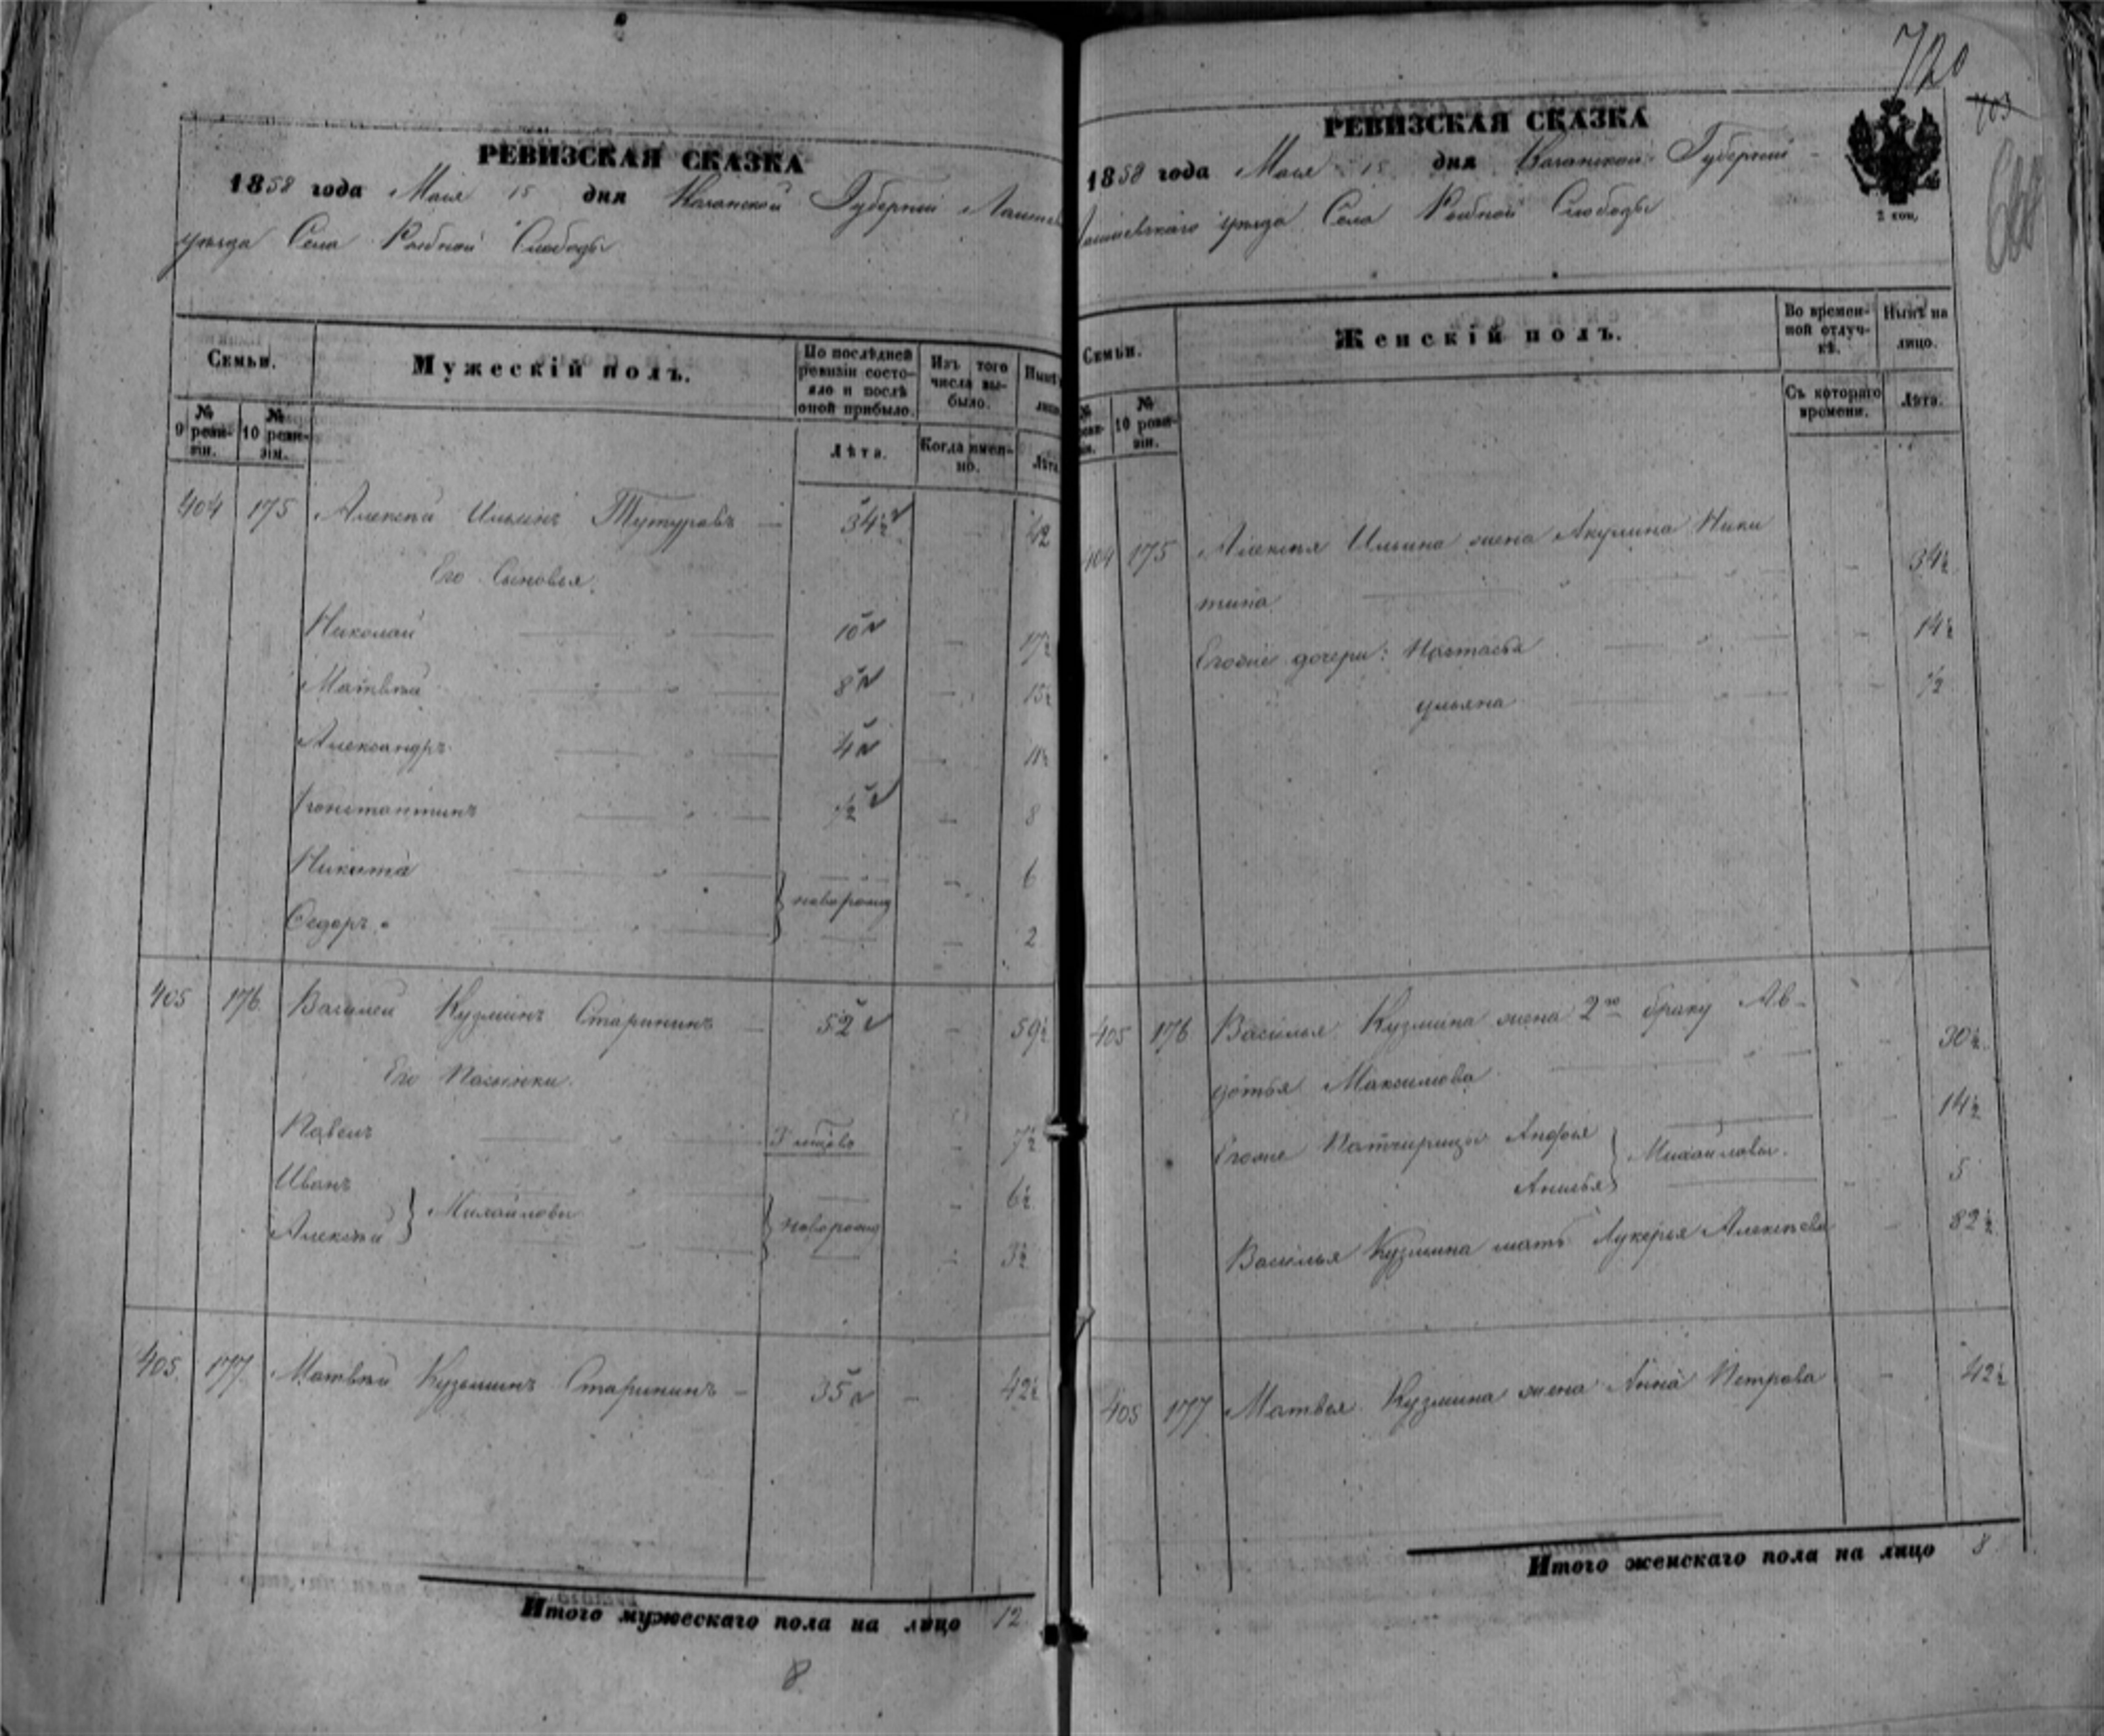 РЕВИЗСКАЯ СКАЗКА
1858 года Маія 15 дня Казанской Губерніи Лаишев
уезда Села Рыбной Слободы
Семьи.
Мужескій полъ.
По послѣдней ревизіи состояло и послѣ оной прибыло.
Изъ того числа выбыло.
Нынѣ
лицо
№ 9 ревизіи.
№ 10 ревизіи.
Лѣта.
Когда именно.
Лѣта
404 175 Алексѣй Ильинъ Тутуровъ 34½ 42
Его Сыновья:
Николай 10 17½
Матвѣй 8 15½
Александръ 4 11½
Константинъ ½ 8
Никита 6
новорожд
Ѳедоръ 2
405 176 Василей Кузминъ Старининъ 52 59½
Его Пасынки
Павелъ 7½
Иванъ 6½
Михайловы новорожд
Алексѣй 3½
405 177 Матвѣй Кузминъ Старининъ 35 42½
Итого мужескаго пола на лицо 12
8
720
703
РЕВИЗСКАЯ СКАЗКА
1858 года Маія 15 дня Казанской Губерніи
Лаишевскаго уезда Села Рыбной Слободы
2 коп.
Семьи.
Женскій полъ.
Во временной отлучкѣ.
Нынѣ на лицо.
№ 10 ревизіи.
Съ котораго времени.
Лѣта.
404 175 Алексѣя Ильина жена Акулина Ники
тина 34½
Егоже дочери: Настасья 14½
Ульяна ½
405 176 Василья Кузмина жена 2го браку Ав-
дотья Максимова 30½
Егоже Патчирицы Анфья 14½
Михайловы.
Анисья 5
Василья Кузмина мать Лукерья Алексѣева 82½
405 177 Матвея Кузмина жена Анна Петрова 42½
Итого женскаго пола на лицо 8